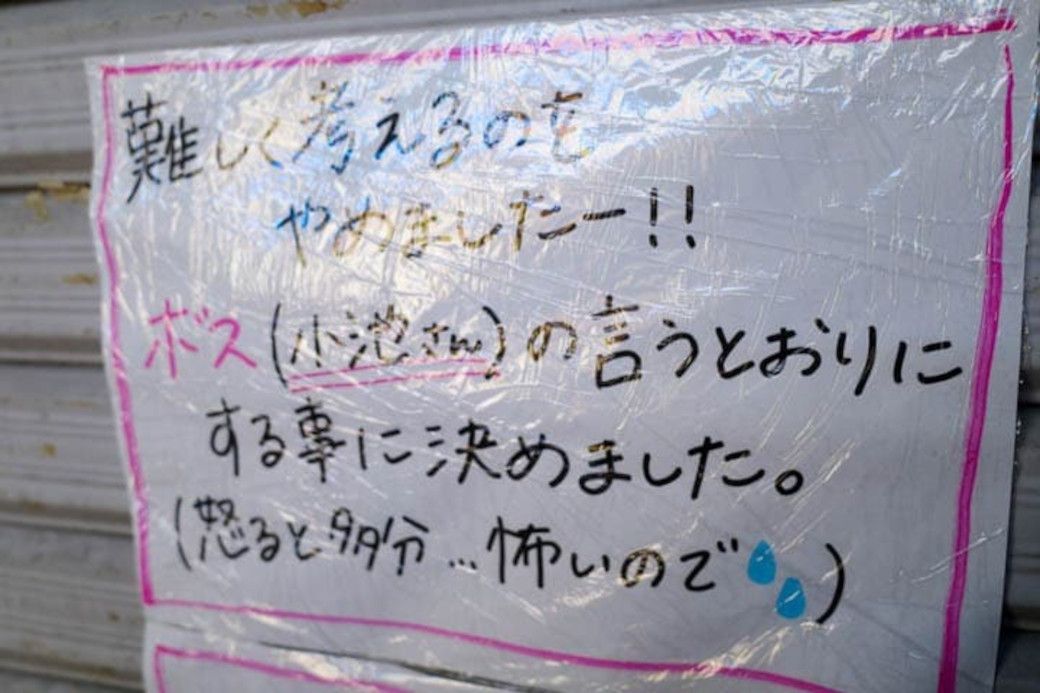 難しく考えるのを
やめましたー!!
ボス(小池さん)の言うとおりに
する事に決めました。
(怒ると多分…怖いので)